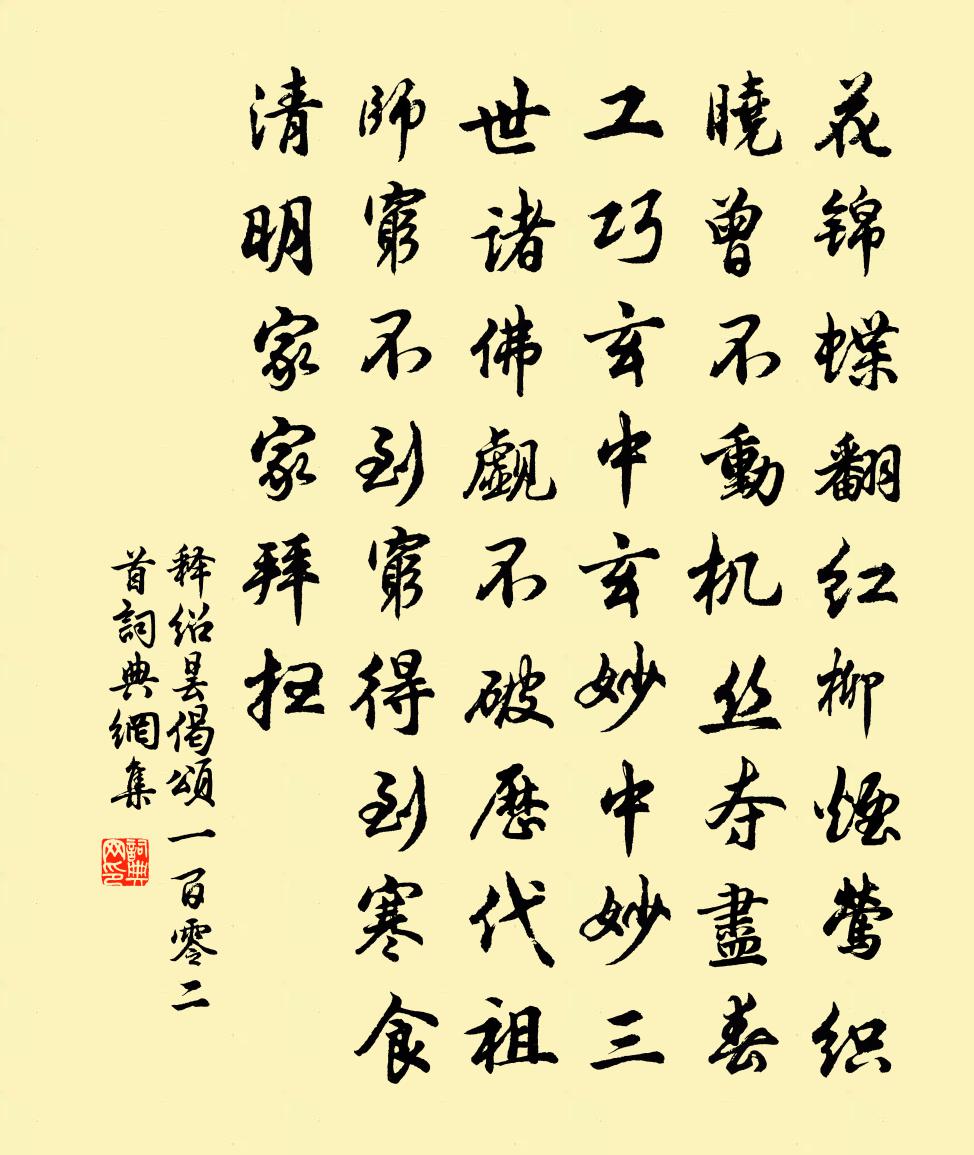 花锦蝶翻红柳烟莺织
曉曾不動机丝夺盡春
工巧玄中玄妙中妙三
世诸佛觑不破歷代祖
师窮不到窮得到寒食
清明家家拜扫
释绍昙偈頌一百零二
首詞典網集
詞典网印